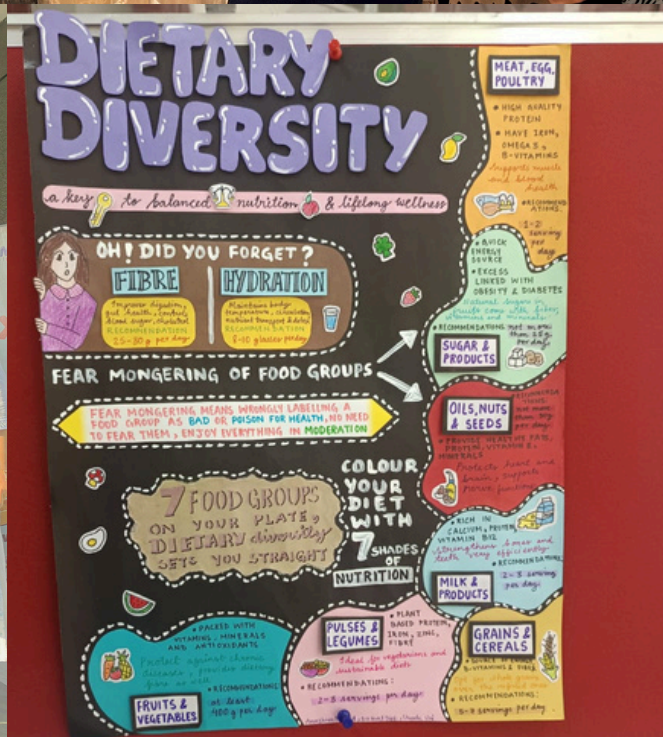 DIETARY
DIVERSITY
a key to balanced nutrition & lifelong wellness
OH! DID YOU FORGET?
FIBRE
Improves digestion,
gut health, controls
blood sugar, cholesterol
RECOMMENDATION
25-30 g per day
HYDRATION
Maintains body
temperature, circulation,
nutrient transport & detox
RECOMMENDATION
8-10 glasses per day
FEAR MONGERING OF FOOD GROUPS
FEAR MONGERING MEANS WRONGLY LABELLING A
FOOD GROUP AS BAD OR POISON FOR HEALTH, NO NEED
TO FEAR THEM, ENJOY EVERYTHING IN MODERATION
7 FOOD GROUPS
ON YOUR PLATE,
DIETARY diversity
SETS YOU STRAIGHT
COLOUR
YOUR
DIET
WITH
7 SHADES
OF
NUTRITION
MEAT, EGG,
POULTRY
• HIGH QUALITY
PROTEIN
• HAVE IRON,
OMEGA 3,
B-VITAMINS
Supports muscle
and blood
health
• RECOMMEND
ATIONS:
1-2
serving
per
day
• QUICK
ENERGY
SOURCE
• EXCESS
LINKED WITH
OBESITY & DIABETES
Natural sugar in
fruits come with fiber,
vitamins and minerals
• RECOMMENDATIONS: not more
than 25g
per day
SUGAR &
PRODUCTS
OILS, NUTS
& SEEDS
per day
• PROVIDE HEALTHY FATS,
PROTEIN, VITAMIN E,
MINERALS
Protects heart and
brain, supports
nerve function
• RICH IN
CALCIUM, PROTEIN
VITAMIN B12
Strengthens bones and
teeth very efficiently
• RECOMMENDATIONS
2-3 serving
per day
MILK &
PRODUCTS
• PACKED WITH
VITAMINS, MINERALS
AND ANTIOXIDANTS
Protect against chronic
diseases, provides dietary
fibre as well
• RECOMMENDATIONS
at least
400 g per day
FRUITS &
VEGETABLES
PULSES &
LEGUMES
• PLANT
BASED PROTEIN,
IRON, ZINC,
FIBRE
Ideal for vegetarians and
sustainable diets
• RECOMMENDATIONS:
2-3 servings per day
GRAINS &
CEREALS
• SOURCE OF ENERGY
B-VITAMINS & FIBRE
opt for whole grains
over the refined ones
• RECOMMENDATIONS:
servings per day